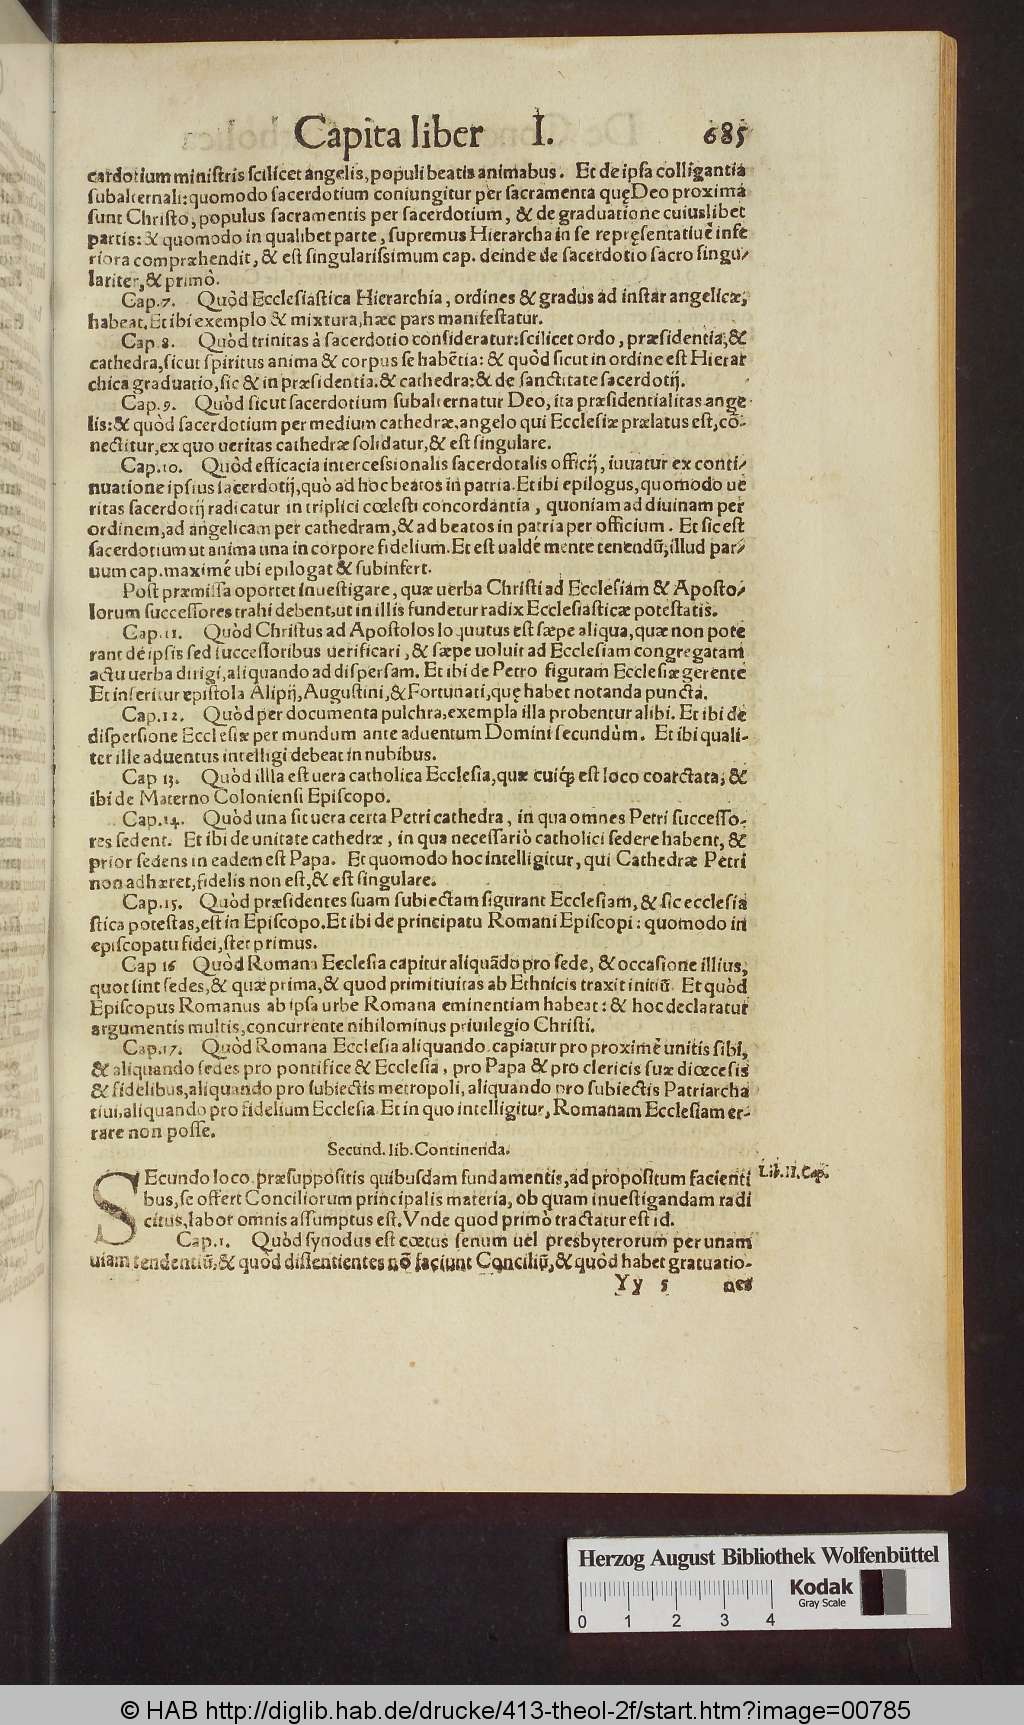 Capita liber I. 685
cerdotium ministris scilicet angelis, populi beatis animabus. Et de ipsa colligantia
subalternali: quomodo sacerdotium coniungitur per sacramenta quę Deo proxima
sunt Christo, populus sacramentis per sacerdotium, & de graduatione cuiuslibet
partis: & quomodo in qualibet parte, supremus Hierarcha in se repręsentatiuè infe
riora compræhendit, & est singularissimum cap. deinde de sacerdotio sacro singu-
lariter, & primò.
Cap. 7. Quòd Ecclesiastica Hierarchia, ordines & gradus ad instar angelicæ,
habeat. Et ibi exemplo & mixtura, hæc pars manifestatur.
Cap 8. Quòd trinitas à sacerdotio consideratur: scilicet ordo, præsidentia, &
cathedra, sicut spiritus anima & corpus se habētia: & quòd sicut in ordine est Hierar
chica graduatio, sic & in præsidentia. & cathedra: & de sanctitate sacerdotij.
Cap. 9. Quòd sicut sacerdotium subalternatur Deo, ita præsidentialitas ange-
lis: & quòd sacerdotium per medium cathedræ, angelo qui Ecclesiæ prælatus est, cō-
nectitur, ex quo ueritas cathedræ solidatur, & est singulare.
Cap. 10. Quòd efficacia intercessionalis sacerdotalis officij, iuuatur ex conti-
nuatione ipsius sacerdotij, quò ad hoc beatos in patria. Et ibi epilogus, quomodo ue
ritas sacerdotij radicatur in triplici cœlesti concordantia, quoniam ad diuinam per
ordinem, ad angelicam per cathedram, & ad beatos in patria per officium. Et sic est
sacerdotium ut anima una in corpore fidelium. Et est ualdè mente tenendū, illud par-
uum cap. maximè ubi epilogat & subinfert.
Post præmissa oportet inuestigare, quæ uerba Christi ad Ecclesiam & Aposto-
lorum successores trahi debent, ut in illis fundetur radix Ecclesiasticæ potestatis.
Cap. 11. Quòd Christus ad Apostolos loquutus est sæpe aliqua, quæ non pote
rant de ipsis sed successoribus uerificari, & sæpe uoluit ad Ecclesiam congregatam
actu uerba dirigi, aliquando ad dispersam. Et ibi de Petro figuram Ecclesiæ gerente
Et inseritur epistola Alipij, Augustini, & Fortunati, quę habet notanda puncta.
Cap. 12. Quòd per documenta pulchra, exempla illa probentur alibi. Et ibi de
dispersione Ecclesiæ per mundum ante aduentum Domini secundùm. Et ibi quali-
ter ille aduentus intelligi debeat in nubibus.
Cap 13. Quòd illla est uera catholica Ecclesia, quæ cuiq; est loco coarctata, &
ibi de Materno Coloniensi Episcopo.
Cap. 14. Quòd una sit uera certa Petri cathedra, in qua omnes Petri successo-
res sedent. Et ibi de unitate cathedræ, in qua necessariò catholici sedere habent, &
prior sedens in eadem est Papa. Et quomodo hoc intelligitur, qui Cathedræ Petri
non adhæret, fidelis non est, & est singulare.
Cap. 15. Quòd præsidentes suam subiectam figurant Ecclesiam, & sic ecclesia
stica potestas, est in Episcopo. Et ibi de principatu Romani Episcopi: quomodo in
episcopatu fidei, stet primus.
Cap 16 Quòd Romana Ecclesia capitur aliquādo pro sede, & occasione illius,
quot sint sedes, & quæ prima, & quod primitiuitas ab Ethnicis traxit initiū. Et quòd
Episcopus Romanus ab ipsa urbe Romana eminentiam habeat: & hoc declaratur
argumentis multis, concurrente nihilominus priuilegio Christi.
Cap. 17. Quòd Romana Ecclesia aliquando capiatur pro proximè unitis sibi,
& aliquando sedes pro pontifice & Ecclesia, pro Papa & pro clericis suæ diœcesis
& fidelibus, aliquando pro subiectis metropoli, aliquando pro subiectis Patriarcha
tiui, aliquando pro fidelium Ecclesia. Et in quo intelligitur, Romanam Ecclesiam er-
rare non posse.
Secund. lib. Continenda.
SEcundo loco præsuppositis quibusdam fundamentis, ad propositum facienti Lib. II. Cap.
bus, se offert Conciliorum principalis materia, ob quam inuestigandam radi
citus, labor omnis assumptus est. Vnde quod primò tractatur est id.
Cap. 1. Quòd synodus est cœtus senum uel presbyterorum per unam
uiam tendentiū, & quòd dissentientes nō faciunt Conciliū, & quòd habet gratuatio-
Yy 5 nes
Herzog August Bibliothek Wolfenbüttel
Kodak
Gray Scale
0 1 2 3 4
© HAB http://diglib.hab.de/drucke/413-theol-2f/start.htm?image=00785